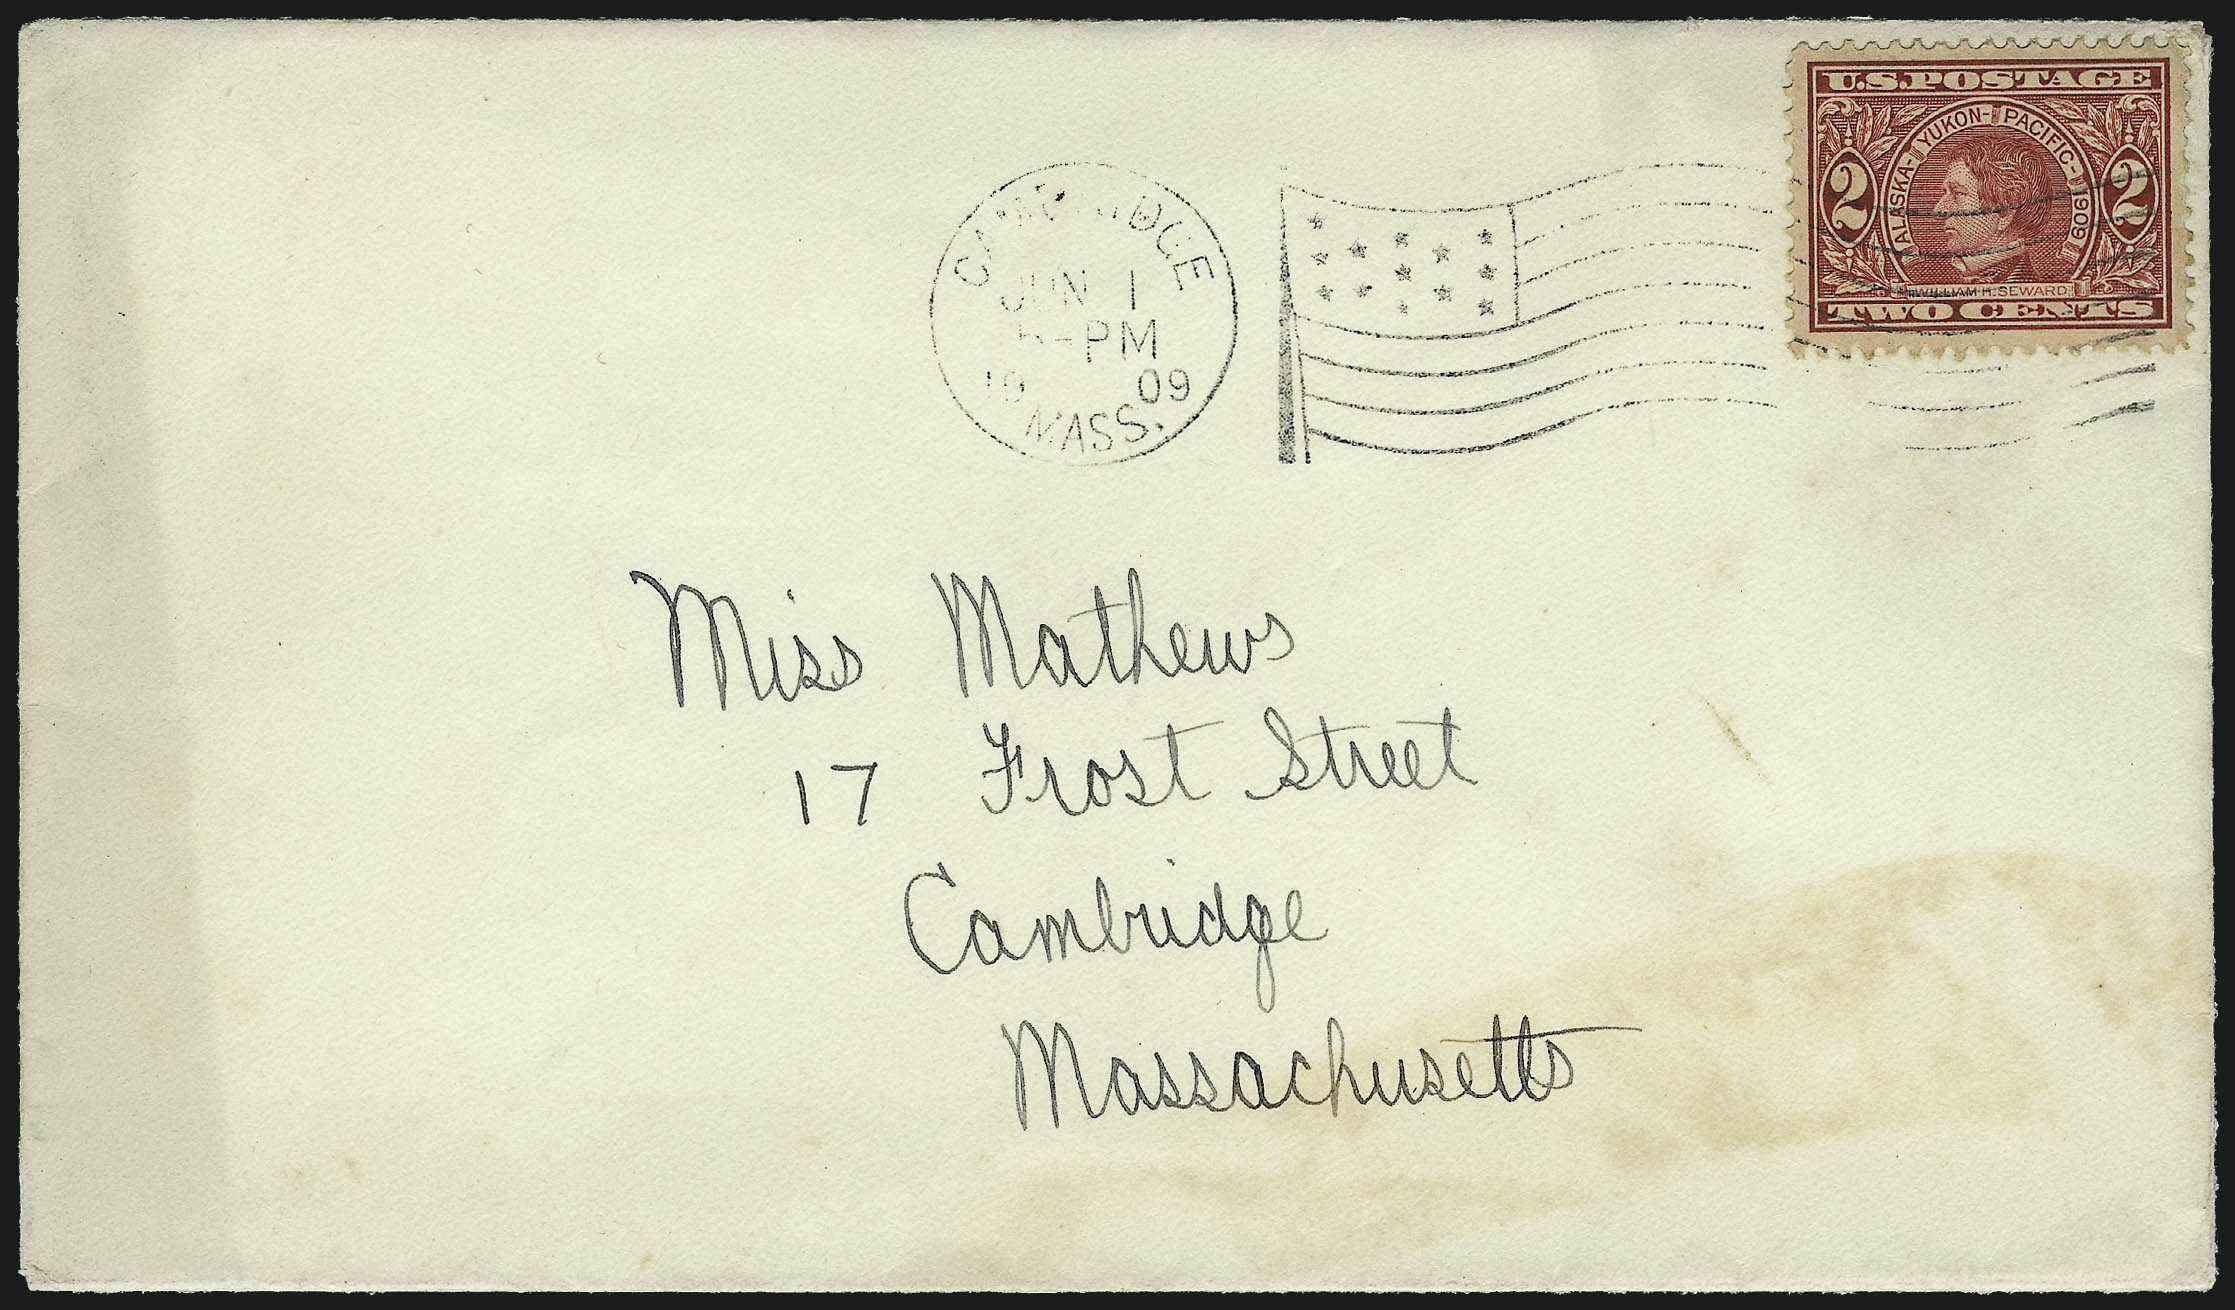 U.S. POSTAGE
ALASKA-YUKON-PACIFIC- 1909
2 2
WILLIAM H. SEWARD
TWO CENTS
CAMBRIDGE
JUN 1
-PM
19 09
MASS.
Miss Mathews
17 Frost Street
Cambridge
Massachusetts